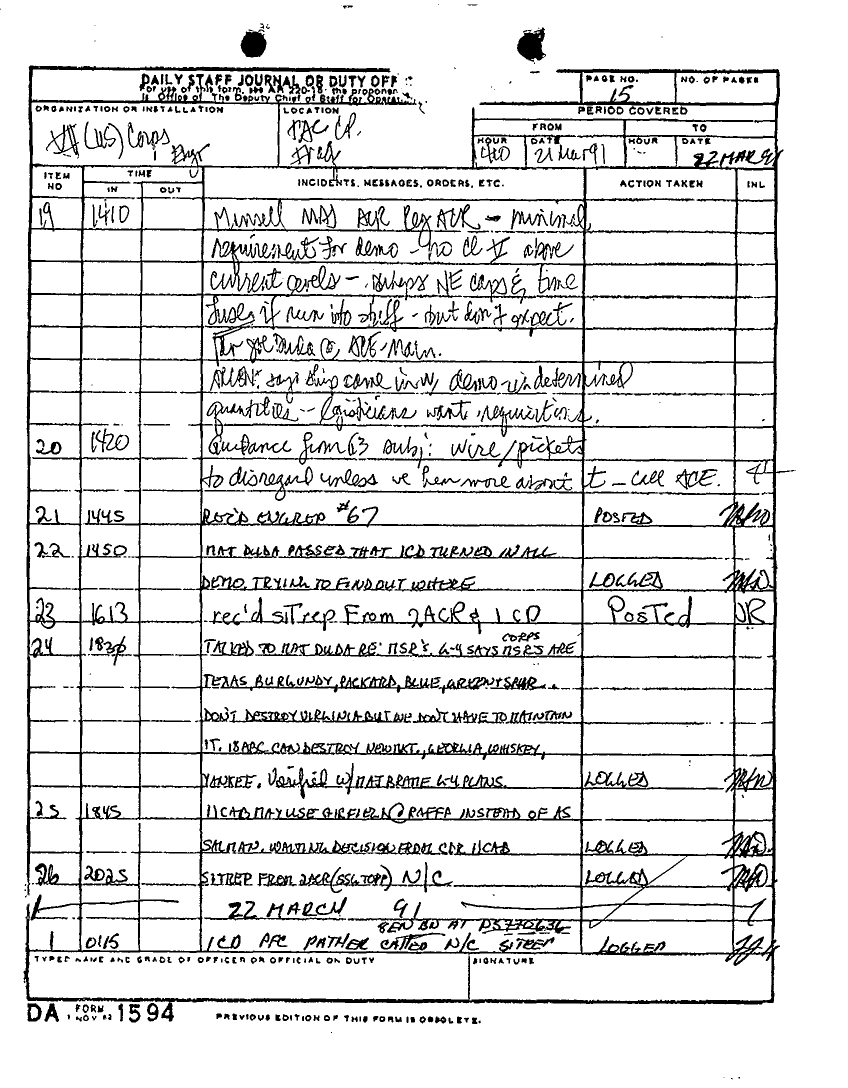 DAILY STAFF JOURNAL OR DUTY OFF
For use of this form, see AR 220-15; the proponen
is Office of The Deputy Chief of Staff for Operat
PAGE NO.
15
NO. OF PAGES
ORGANIZATION OR INSTALLATION
VII (US) Corps
Engr
LOCATION
TAC CP.
Iraq
PERIOD COVERED
FROM
TO
HOUR
DATE
21 Mar 91
HOUR
DATE
22 MAR 91
ITEM NO
TIME
IN
OUT
INCIDENTS, MESSAGES, ORDERS, ETC.
ACTION TAKEN
INL
19 1410 minimal
requirement for demo - no Cl V above
current levels - perhaps NE caps & time
fuses if run into stuff - but don't expect.
Duda @ ACE-Main.
ALLEN: says ship came in w/ demo - undetermined
quantities - logisticians want requisitions.
20 1420 Guidance from G3 subj: wire/pickets
to disregard unless we hear more about it - call ACE.
21 1445 REC'D ENGREP #67 POSTED
22 1450 MAJ DUDA PASSED THAT 1CD TURNED IN ALL
DEMO. TRYING TO FIND OUT WHERE LOGGED
23 1613 rec'd sitrep From 2ACR & 1CD Posted JR
24 1830 TALKED TO MAJ DUDA RE: MSR'S. G-4 SAYS CORPS MSR'S ARE
TEXAS, BURGUNDY, PACKARD, BLUE, GREEN, SPUR.
DON'T DESTROY VIRGINIA BUT WE DON'T HAVE TO MAINTAIN
IT. 18ABC CAN DESTROY NEWMKT., GEORGIA, WHISKEY,
YANKEE. Verified w/ MAJ BRAME G-4 PLANS. LOGGED
25 1845 11CAB MAY USE AIRFIELD @ RAFFA INSTEAD OF AS
SALMAN. WAITING DECISION FROM CDR 11CAB LOGGED
26 2025 SITREP FROM 2ACR (SSG TOPP) N/C LOGGED
22 MARCH 91
8EN BN AT PS770636
1 0115 1CD PFC PATHER CALLED N/C SITREP LOGGED
TYPED NAME AND GRADE OF OFFICER OR OFFICIAL ON DUTY
SIGNATURE
DA FORM 1 NOV 62 1594
PREVIOUS EDITION OF THIS FORM IS OBSOLETE.